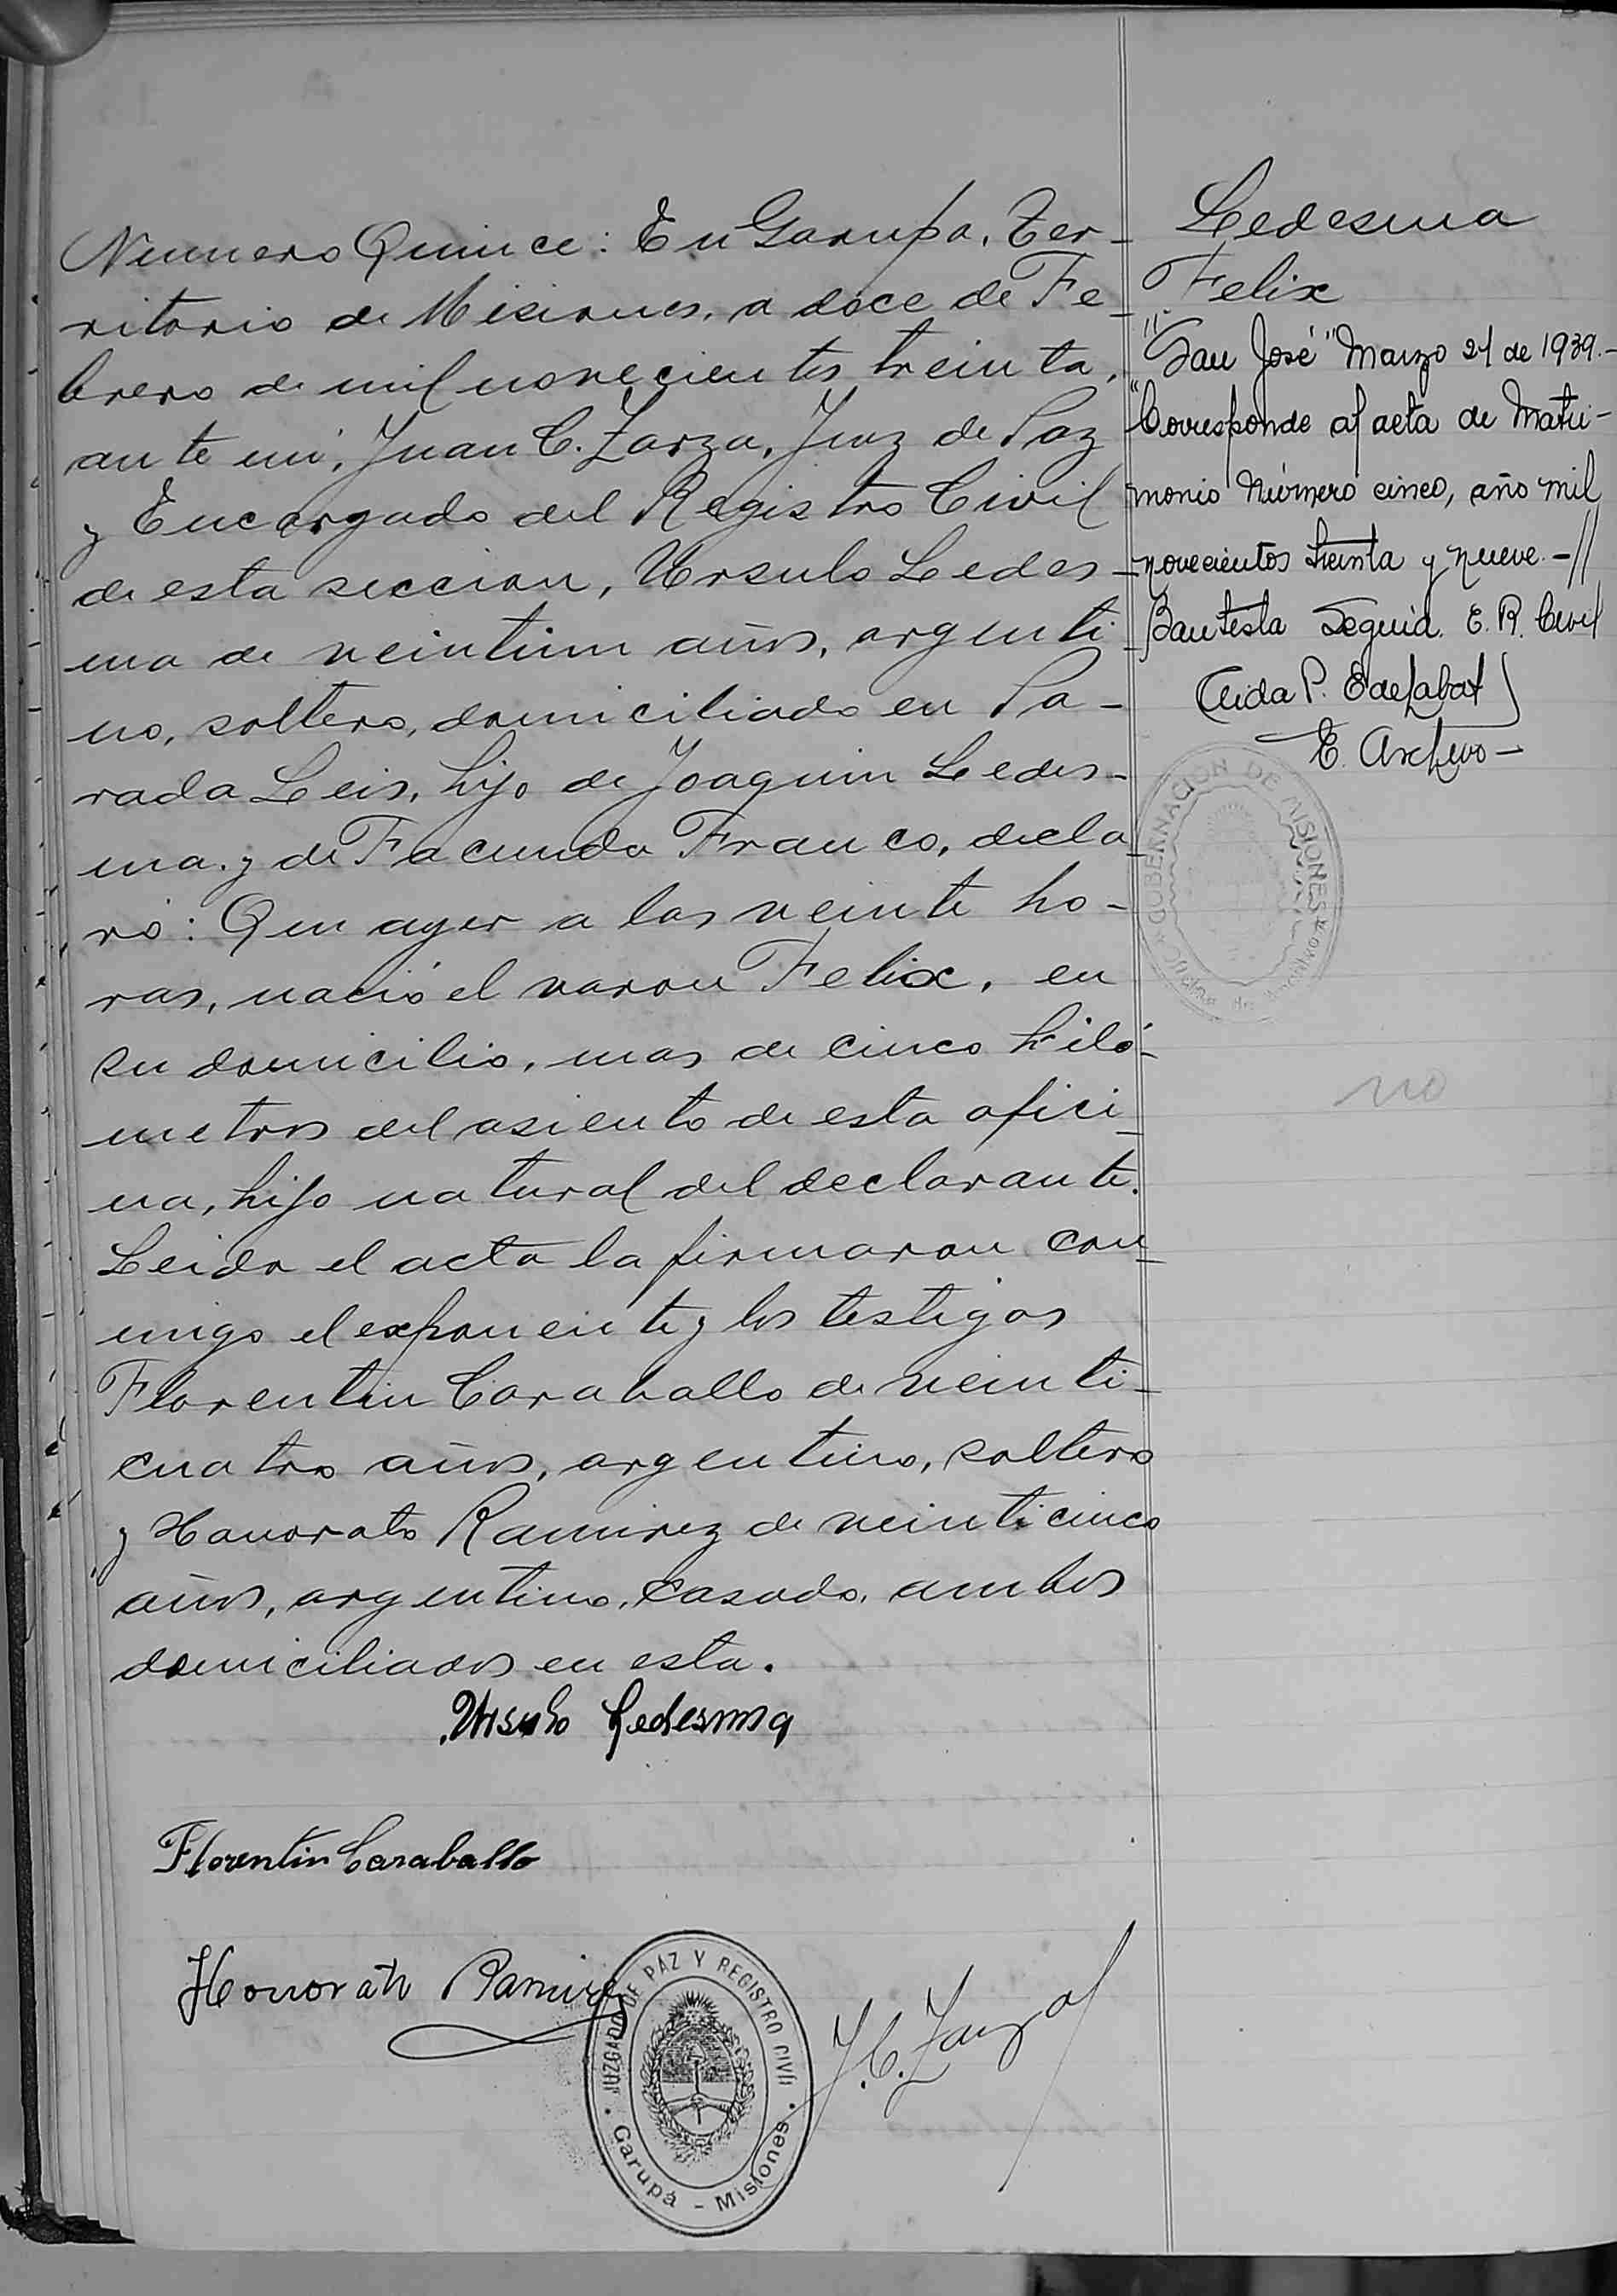 Numero Quince: En Garupa, Ter-
ritorio de Misiones, a doce de Fe-
brero de mil novecientos treinta,
ante mi, Juan C. Zarza, Juez de Paz
y Encargado del Registro Civil
de esta seccion, Ursulo Ledes-
ma de veintiun años, argenti-
no, soltero, domiciliado en Pa-
rada Leis, hijo de Joaquin Ledes-
ma y de Facunda Franco, decla-
ró: Que ayer a las veinte ho-
ras, nació el varon Felix, en
su domicilio, mas de cinco kiló-
metros del asiento de esta ofici-
na, hijo natural del declarante.
Leida el acta la firmaron con-
migo el exponente y los testigos
Florentin Caraballo de veinti-
cuatro años, argentino, soltero
y Honorato Ramirez de veinticinco
años, argentino, casado, ambos
domiciliados en esta.
Ursulo Ledesma
Florentin Caraballo
Honorato Ramirez
J.C. Zarza
JUZGADO DE PAZ Y REGISTRO CIVIL
Garupá - Misiones
Ledesma
Felix
"San José" Marzo 21 de 1939.-
"Corresponde al acta de Matri-
monio Número cinco, año mil
novecientos treinta y nueve.-//
Bautista Seguid. E. R. Civil
Aida P. de
E. Archivo-
GOBERNACION DE MISIONES
no